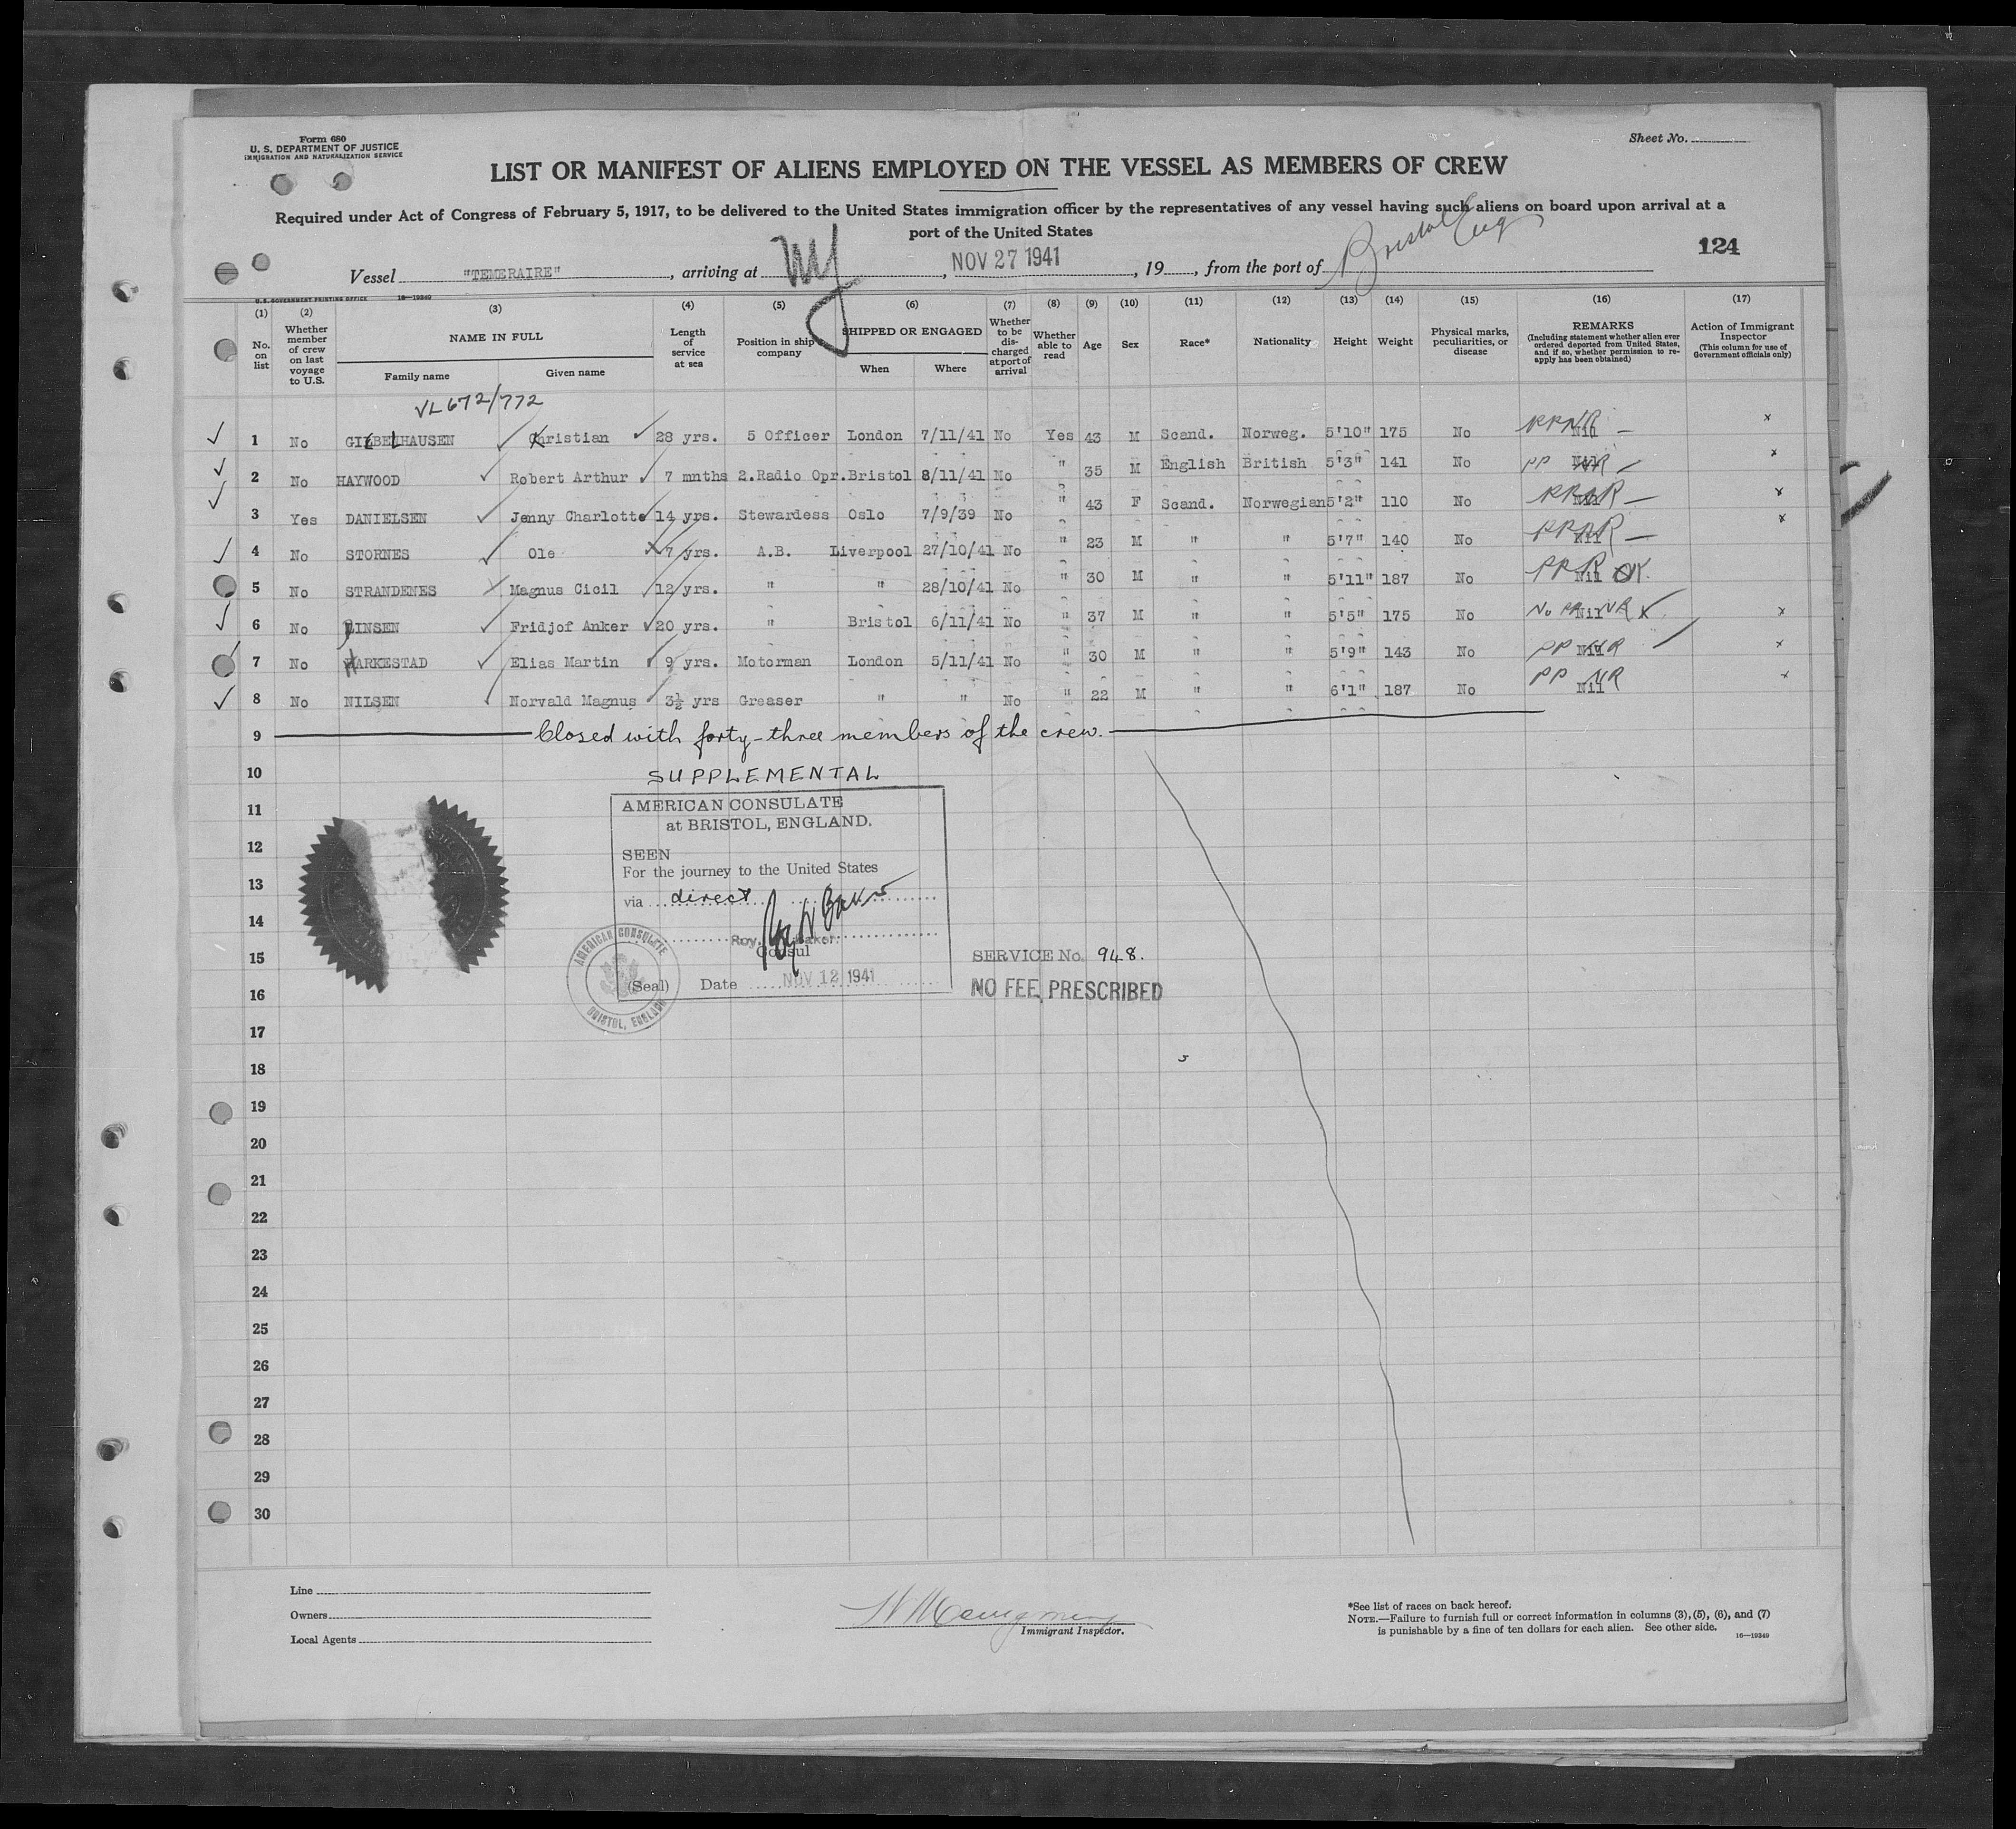 Form 680
U. S. DEPARTMENT OF JUSTICE
IMMIGRATION AND NATURALIZATION SERVICE
Sheet No.
LIST OR MANIFEST OF ALIENS EMPLOYED ON THE VESSEL AS MEMBERS OF CREW
Required under Act of Congress of February 5, 1917, to be delivered to the United States immigration officer by the representatives of any vessel having such aliens on board upon arrival at a
port of the United States
124
Vessel "TEMERAIRE", arriving at NY, NOV 27 1941, 19, from the port of Bristol Eng
U. S. GOVERNMENT PRINTING OFFICE 16—19349
(1) No. on list
(2) Whether member of crew on last voyage to U.S.
(3) NAME IN FULL Family name Given name
(4) Length of service at sea
(5) Position in ship company
(6) SHIPPED OR ENGAGED When Where
(7) Whether to be discharged at port of arrival
(8) Whether able to read
(9) Age
(10) Sex
(11) Race*
(12) Nationality
(13) Height
(14) Weight
(15) Physical marks, peculiarities, or disease
(16) REMARKS (Including statement whether alien ever ordered deported from United States, and if so, whether permission to reapply has been obtained)
(17) Action of Immigrant Inspector (This column for use of Government officials only)
VL 672/772
1 No Christian 28 yrs. 5 Officer London 7/11/41 No Yes 43 M Scand. Norweg. 5'10" 175 No Nil
2 No HAYWOOD Robert Arthur 7 mnths 2.Radio Opr. Bristol 8/11/41 No " 35 M English British 5'3" 141 No PP Nil
3 Yes DANIELSEN Jenny Charlotte 14 yrs. Stewardess Oslo 7/9/39 No " 43 F Scand. Norwegian 5'2" 110 No Nil
4 No STORNES Ole 7 yrs. A.B. Liverpool 27/10/41 No " 23 M " " 5'7" 140 No Nil
5 No STRANDENES Magnus Cicil 12 yrs. " " 28/10/41 No " 30 M " " 5'11" 187 No Nil OK.
6 No Fridjof Anker 20 yrs. " Bristol 6/11/41 No " 37 M " " 5'5" 175 No No PP Nil NR x
7 No Elias Martin 9 yrs. Motorman London 5/11/41 No " 30 M " " 5'9" 143 No PP Nil NR
8 No NILSEN Norvald Magnus 3½ yrs Greaser " " No " 22 M " " 6'1" 187 No PP Nil NR
9 Closed with forty-three members of the crew.
10 SUPPLEMENTAL
11 AMERICAN CONSULATE
at BRISTOL, ENGLAND.
12 SEEN
For the journey to the United States
13 via direct
14
Roy Baker
15 Consul
SERVICE No. 948.
(Seal) Date NOV 12 1941
AMERICAN CONSULATE
BRISTOL, ENGLAND
16 NO FEE PRESCRIBED
17
18
19
20
21
22
23
24
25
26
27
28
29
30
Line
Owners
Local Agents
Immigrant Inspector.
*See list of races on back hereof.
NOTE.—Failure to furnish full or correct information in columns (3), (5), (6), and (7)
is punishable by a fine of ten dollars for each alien. See other side. 16—19349